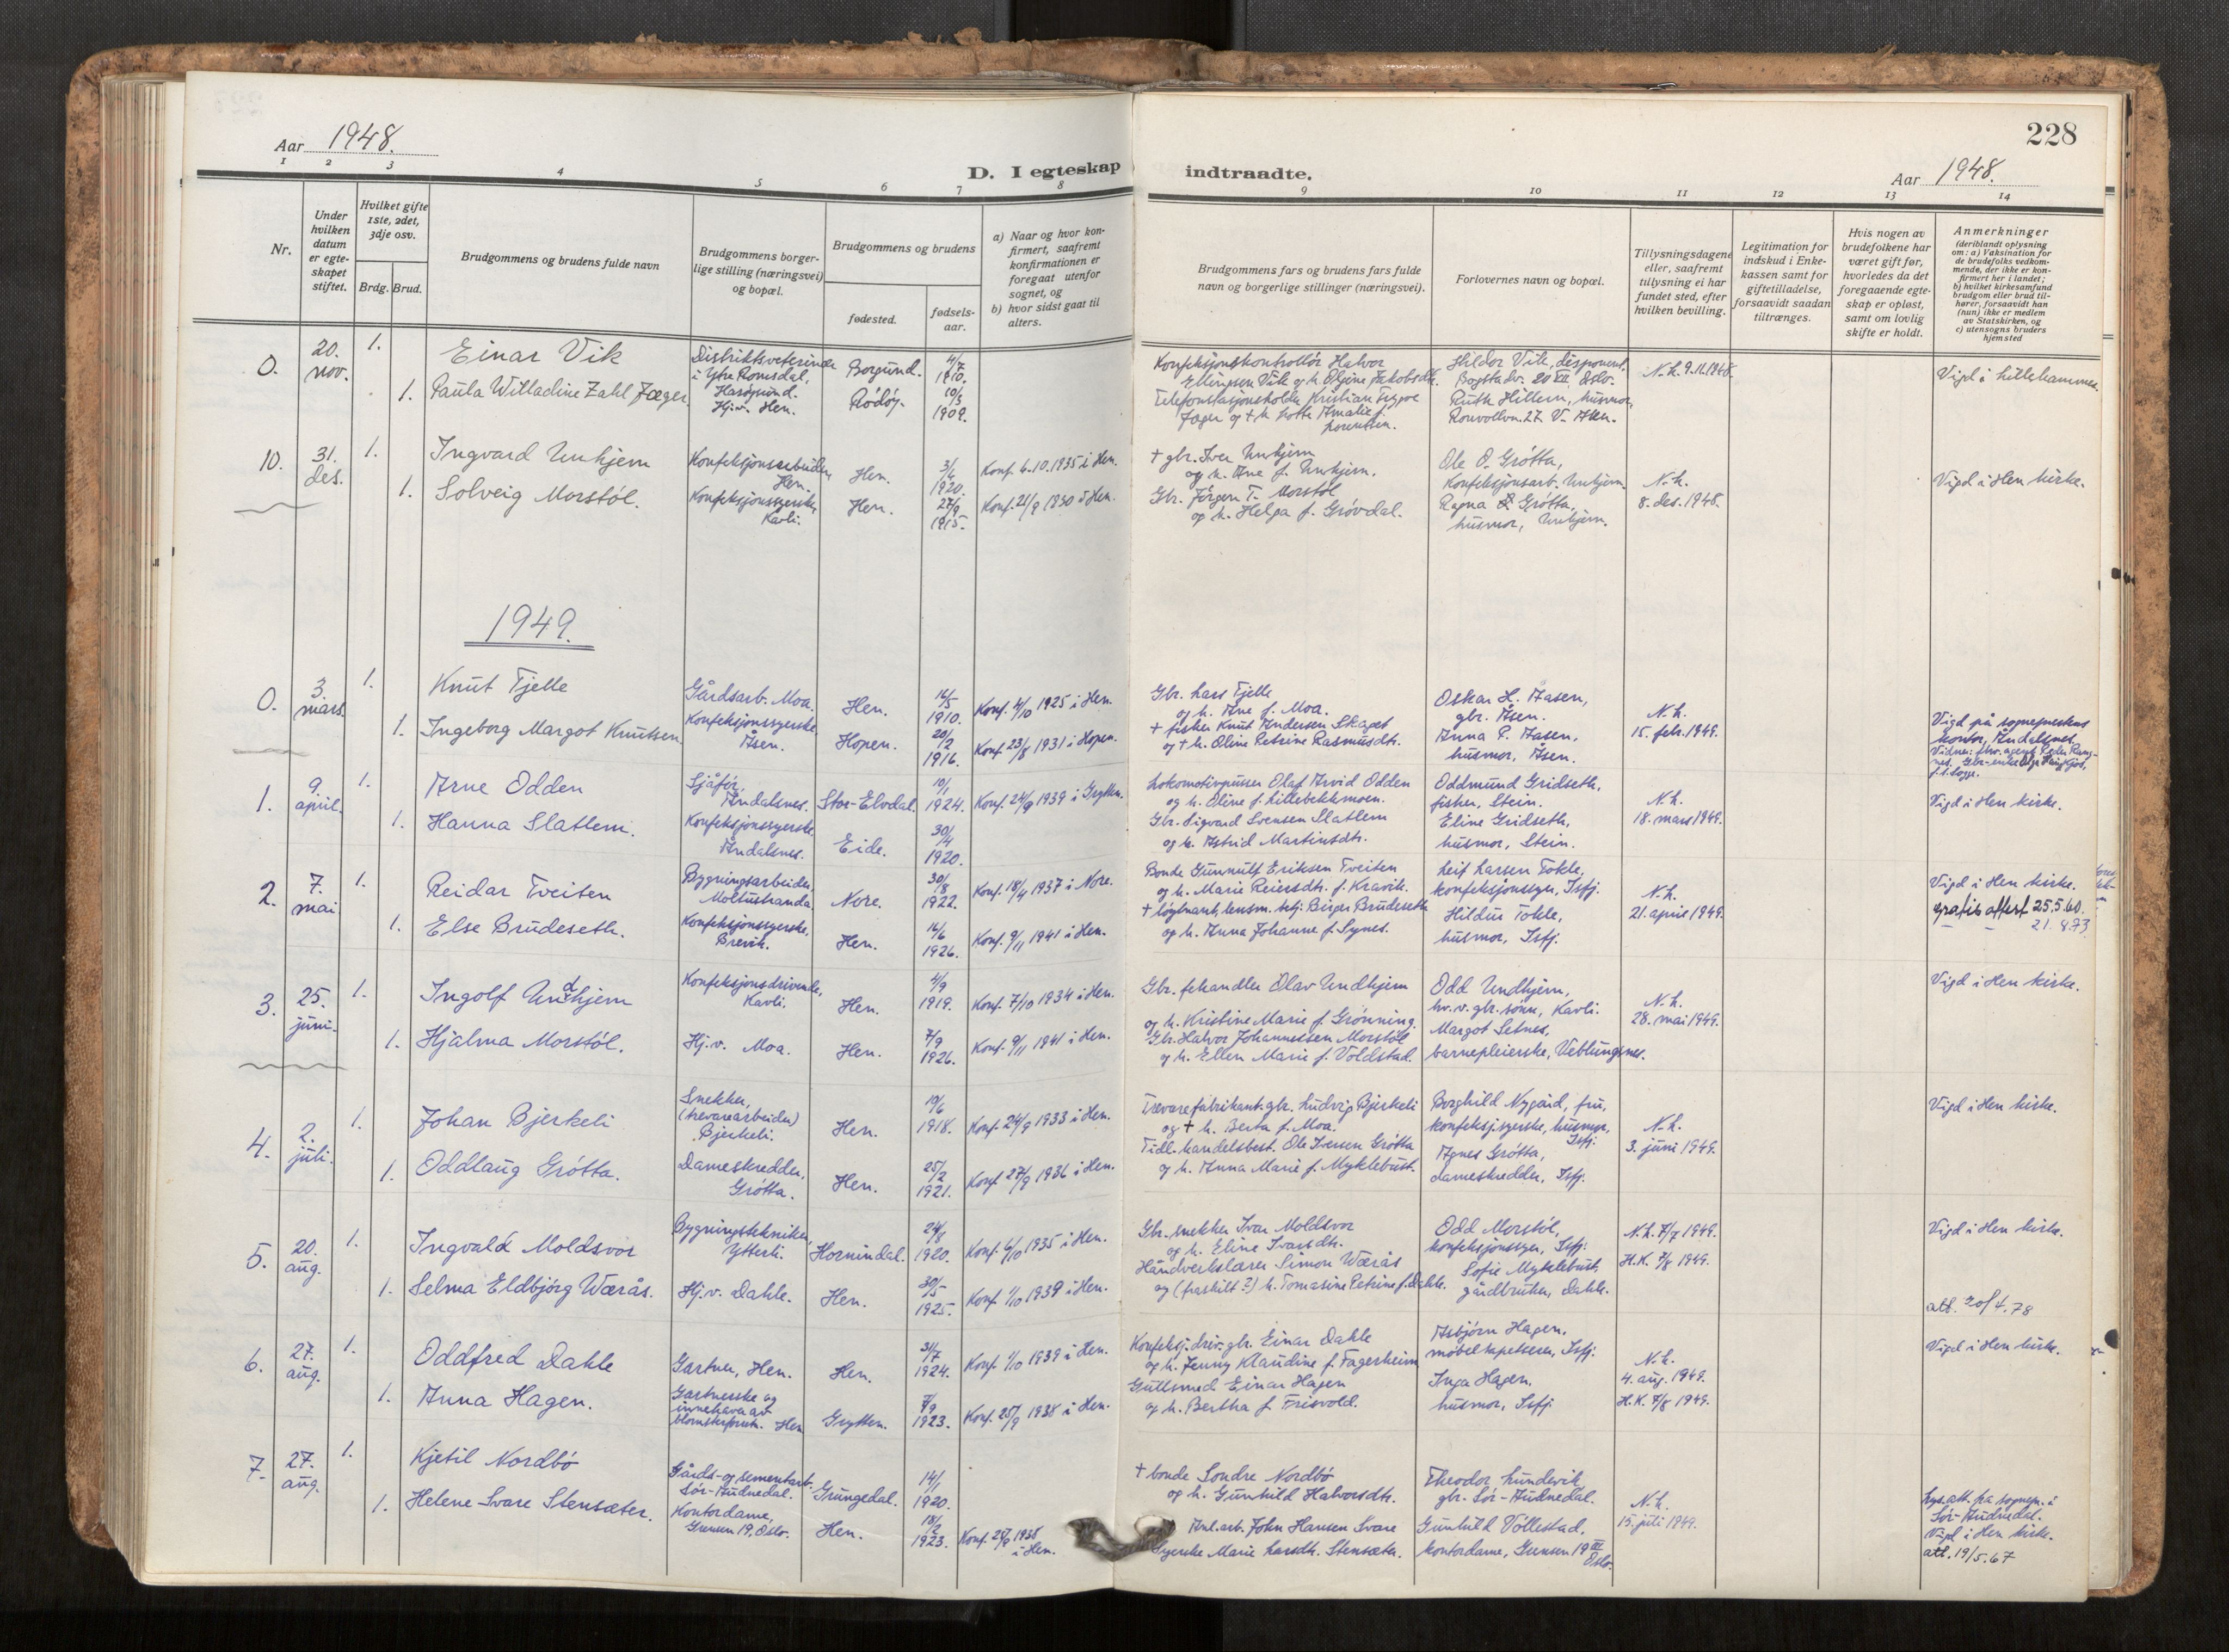 228
Aar 1948.
Aar 1948.
D. I egteskap indtraadte.
1 2 3 4 5 6 7 8 9 10 11 12 13 14
Nr.
Under hvilken datum er egte-skapet stiftet.
Hvilket gifte 1ste, 2det, 3dje osv.
Brdg. Brud.
Brudgommens og brudens fulde navn
Brudgommens borger-lige stilling (næringsvei) og bopæl.
Brudgommens og brudens
fødested.
fødsels-aar.
a) Naar og hvor kon-firmert, saafremt konfirmationen er foregaat utenfor sognet, og
b) hvor sidst gaat til alters.
Brudgommens fars og brudens fars fulde navn og borgerlige stillinger (næringsvei).
Forlovernes navn og bopæl.
Tillysningsdagene eller, saafremt tillysning ei har fundet sted, efter hvilken bevilling.
Legitimation for indskud i Enke-kassen samt for giftetilladelse, forsaavidt saadan tiltrænges.
Hvis nogen av brudefolkene har været gift før, hvorledes da det foregaaende egte-skap er opløst, samt om lovlig skifte er holdt.
Anmerkninger
(deriblandt oplysning om: a) Vaksination for de brudefolks vedkom-mende, der ikke er kon-firmert her i landet; b) hvilket kirkesamfund brudgom eller brud til-hører, forsaavidt han (hun) ikke er medlem av Statskirken, og c) utensogns bruders hjemsted
0. 20. nov. 1. Einar Vik
Distriktsveterinær i Ytre Romsdal, Hasøysund.
Borgund. 4/7 1910.
Konfeksjonskontrollør Halvor Ellingsen Vik og h. Oljine Jakobsdtr.
Hildor Vik, disponent. Bogstadv. 20 VII Oslo.
N.h. 9.11.1948.
Vigd i Lillehammer.
1. Paula Willadine Zahl Jæger
Hj.v. Hen.
Rødøy. 10/3 1909.
Telefonstasjonsholder Kristian Trygve Jæger og + h. Lotte Amalie f. Lorentsen.
Ruth Hillem, husmor,
10. 31. des. 1. Ingvard Unhjem
Konfeksjonsarbeider, Hen.
Hen. 3/4 1920. Konf. 6.10.1935 i Hen.
+ gbr. Iver Unhjem og h. Ane f. Unhjem.
Ole O. Grøtta, Konfeksjonsarb. Unhjem.
N.h. 8. des. 1948.
Vigd i Hen kirke.
1. Solveig Morstøl.
Konfeksjonssyerske, Kavli.
Hen. 27/9 1915. Konf. 21/9 1930 i Hen.
Gbr. Jørgen T. Morstøl og h. Helga f. Grøvdal.
Ragna Grøtta, husmor, Unhjem.
1949.
0. 3. mars. 1. Knut Tjelle
Gårdsarb. Moa.
Hen. 16/5 1910. Konf. 4/10 1925 i Hen.
Gbr. Lars Tjelle og h. Ane f. Moa.
Oskar L. Aasen, gbr. Åsen.
N.h. 15. febr. 1949.
Vigd på sogneprestens kontor, Åndalsnes.
1. Ingeborg Margot Knutsen
Konfeksjonssyerske, Åsen.
Hopen. 20/2 1916. Konf. 23/8 1931 i Hopen.
+ fisker Knut Andersen Skaget og + h. Oline Petrine Rasmusdtr.
Anna P. Aasen, husmor, Åsen.
1. 9. april. 1. Arne Odden
Sjåfør, Åndalsnes.
Stor-Elvdal. 10/1 1924. Konf. 24/9 1939 i Grytten.
Lokomotivpusser Olaf Arvid Odden og h. Oline f. Lillebekkmoen.
Oddmund Gridseth, fisker, Stein.
N.h. 18. mars 1949.
Vigd i Hen kirke.
1. Hanna Slatlem.
Konfeksjonssyerske Åndalsnes.
Eide. 30/4 1920.
Gbr. Sigvard Svensen Slatlem og h. Astrid Martinsdtr.
Eline Gridseth, husmor, Stein.
2. 7. mai 1. Reidar Tveiten
Bygningsarbeider, Moltustranda.
Nore. 30/8 1922. Konf. 18/4 1937 i Nore.
Bonde Gunnulf Eriksen Tveiten og h. Marie Reiersdtr. f. Kravik.
Leif Larsen Tokle, konfeksjonssyer, Isfj.
N.h. 21. april 1949.
Vigd i Hen kirke.
gratis attest 25.5.60.
— — 21.8.73
1. Else Brudeseth.
Konfeksjonssyerske, Brevik.
Hen. 16/6 1926. Konf. 9/11 1941 i Hen.
+ løytnant, lensm. betj. Birger Brudeseth og h. Anna Johanne f. Synes.
Hildur Tokle, husmor, Isfj.
3. 25. juni. 1. Ingolf Undhjem
Konfeksjonsdrivende, Kavli.
Hen. 4/9 1919. Konf. 7/10 1934 i Hen.
Gbr. fehandler Olav Undhjem og h. Kristine Marie f. Grønning.
Odd Undhjem, hv.v. gbr. sønn, Kavli.
N.h. 28. mai 1949.
Vigd i Hen kirke.
1. Hjalma Morstøl.
Hj.v. Moa.
Hen. 7/9 1926. Konf. 9/11 1941 i Hen.
Gbr. Halvor Johannessen Morstøl og h. Ellen Marie f. Voldstad.
Margot Setnes, barnepleierske, Veblungsnes.
4. 2. juli. 1. Johan Bjerkeli
Snekker, (trevarearbeider) Bjerkeli.
Hen. 19/6 1918. Konf. 24/9 1933 i Hen.
Trevarefabrikant. gbr. Ludvig Bjerkeli og + h. Berta f. Moa.
Borghild Nygård, fru, konfeksj.syerske, husmor, Isfj.
N.h. 3. juni 1949.
Vigd i Hen kirke.
1. Oddlaug Grøtta.
Dameskredder, Grøtta.
Hen. 25/2 1921. Konf. 27/9 1936 i Hen.
Tidl. handelsbest. Ole Iversen Grøtta og h. Anna Marie f. Myklebust.
Agnes Grøtta, dameskredder, Isfj.
5. 20. aug. 1. Ingvald Moldsvor
Bygningstekniker, Ytterli.
Hornindal. 24/8 1920. Konf. 6/10 1935 i Hen.
Gbr. snekker Ivar Moldsvor og h. Eline Ivarsdtr.
Odd Morstøl, konfeksjonssyer, Isfj.
N.h. 7/7 1949.
H.K. 7/8 1949.
Vigd i Hen kirke.
1. Selma Eldbjørg Wærås.
Hj.v. Dahle.
Hen. 30/5 1925. Konf. 1/10 1939 i Hen.
Håndverkslærer Simon Wærås og (fraskilt?) h. Tomasine Petrine f. Dahle.
Sofie Myklebust, gårdbruker, Dahle.
att. 20/4.78
6. 27. aug. 1. Oddfred Dahle
Gartner, Hen.
Hen. 31/7 1924. Konf. 1/10 1939 i Hen.
Konfeksj.driv. gbr. Einar Dahle og h. Jenny Klaudine f. Fagerheim
Asbjørn Hagen, møbeltapetserer, Isfj.
N.h. 4. aug. 1949.
H.K. 7/8 1949.
Vigd i Hen kirke.
1. Anna Hagen.
Gartnerske og innehaver av blomsterforr. Hen
Grytten. 7/9 1923. Konf. 25/9 1938 i Hen.
Gullsmed Einar Hagen og h. Bertha f. Frisvold.
Inga Hagen, husmor, Isfj.
7. 27. aug. 1. Kjetil Nordbø
Gårds- og sementarb. Sør-Audnedal.
Grungedal. 14/1 1920.
+ bonde Sondre Nordbø og h. Gunhild Halvorsdtr.
Theodor Lundevik, gbr. Sør-Audnedal.
N.h. 15. juli 1949.
Lys.att. fra sognep. i Sør-Audnedal.
Vigd i Hen kirke.
att. 19/5.67
1. Helene Svare Stensæter.
Kontordame, Grensen 19, Oslo.
Hen. 18/2 1923. Konf. 25/9 1938 i Hen.
Anl.arb. John Hansen Svare
Syerske Marie Larsdtr. Stensæter.
Gunhild Vollestad, kontordame, Grensen 19 III Oslo.